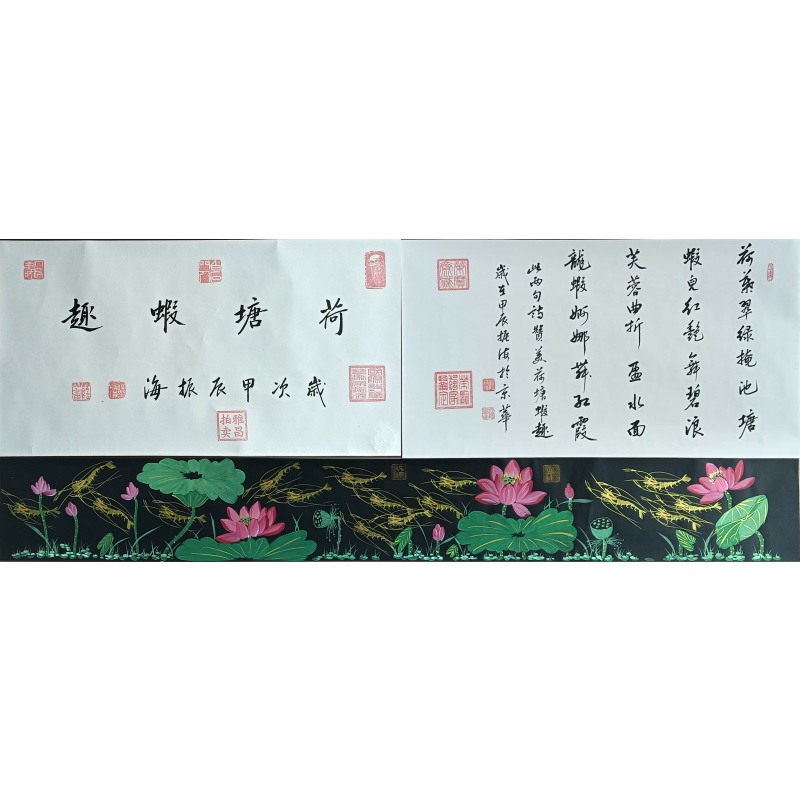 荷塘蝦趣
歲次甲辰振海
雅昌拍卖
荷葉翠绿掩池塘
蝦兒红艷舞碧浪
芙蓉曲折盈水面
龍蝦婀娜舞红霞
此两句詩贊美荷塘蝦趣
歲在甲辰振海於京華